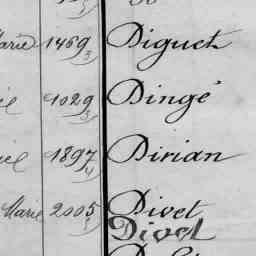 Marie 1469 3 Diguet
1029 3 Dingé
1897 4 Dirian
Marie 2005 Divet
Divet